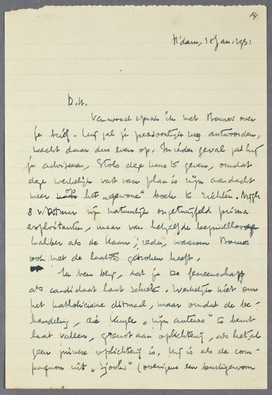 14.
A'dam, 10 Jan. 1931
D.H.
Vanavond sprak ik met Bouws over
je brief. Hij zal je persoonlijk nog antwoorden,
wacht daar dus even op. In ieder geval zal hij
je adviseeren, Stols deze kans te geven, omdat
deze werkelijk vast van plan is zijn aandacht
meer op het "gewone" boek te richten. Nijgh
& v. Ditmar zijn natuurlijk ongetwijfeld prima
exploitanten, maar van hetzelfde
als de Haan; reden, waarom Bouws
ook met de laatste gebroken heeft.
Ik ben blij, dat je de Gemeenschap
als candidaat laat schieten. Werkelijk niet om
het Katholicisme ditmaal, maar omdat de be-
handeling, die Kuyle "zijn auteurs" te beurt
laat vallen, grenst aan oplichterij, als het al
geen zuivere oplichterij is. Hij is als de com-
pagnon uit "Sjooks" (overigens een buitengewoon